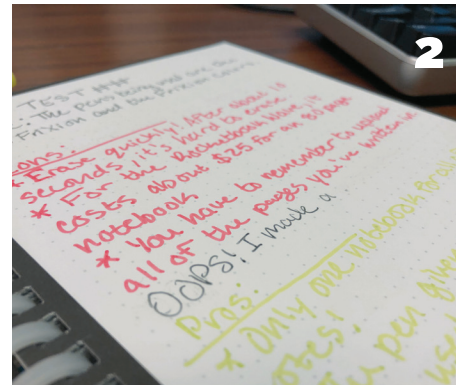 2
TEST
: The Pens being used are the
Frixion and the Frixion Colors
Cons:
* Erase quickly! After about 10
seconds, it's hard to erase
* For the Rocketbook Wave, it
costs about $25 for an 80 page
notebook
* You have to remember to upload
all of the pages you've written in
OOPS! I made a
Pros:
* Only one notebook for all
notes!
pen